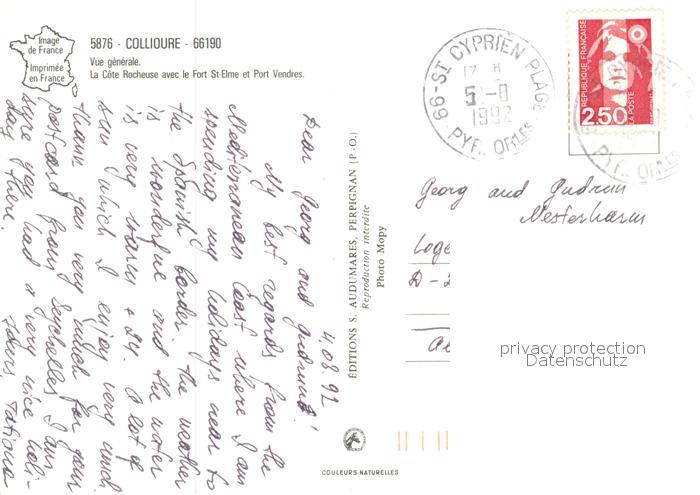 Image
de France
Imprimée
en France
5876 - COLLIOURE - 66190
Vue générale.
La Côte Rocheuse avec le Fort St-Elme et Port Vendres.
4.08.92
Dear Georg and Gudrun!
My best regards from the
Mediterranean Coast where I am
spending my holidays near to
the Spanish border. The weather
is wonderful and the water
is very warm + 24. A lot of
sun which I enjoy very much
Thank you very much for your
postcard from Seychelles I am
sure you had a very nice holi-
day there.
Yours, Tatiana
ÉDITIONS S. AUDUMARES, PERPIGNAN (P.-O.)
Reproduction interdite
Photo Mopy
COULEURS NATURELLES
66-ST CYPRIEN PLAGE
17 H
5-8
1992
PYR. ORLES
RÉPUBLIQUE FRANÇAISE
LA POSTE
2,50
PYR. ORLES
Georg and Gudrun
Loge
D-2
privacy protection
Datenschutz